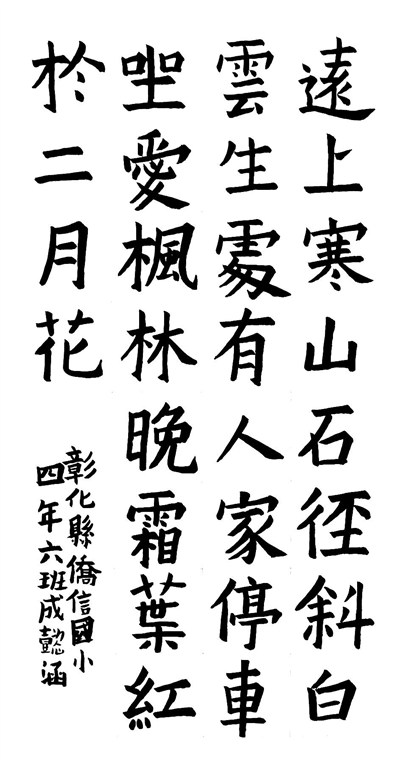 遠上寒山石徑斜白
雲生處有人家停車
坐愛楓林晚霜葉紅
於二月花
彰化縣僑信國小
四年六班成懿涵